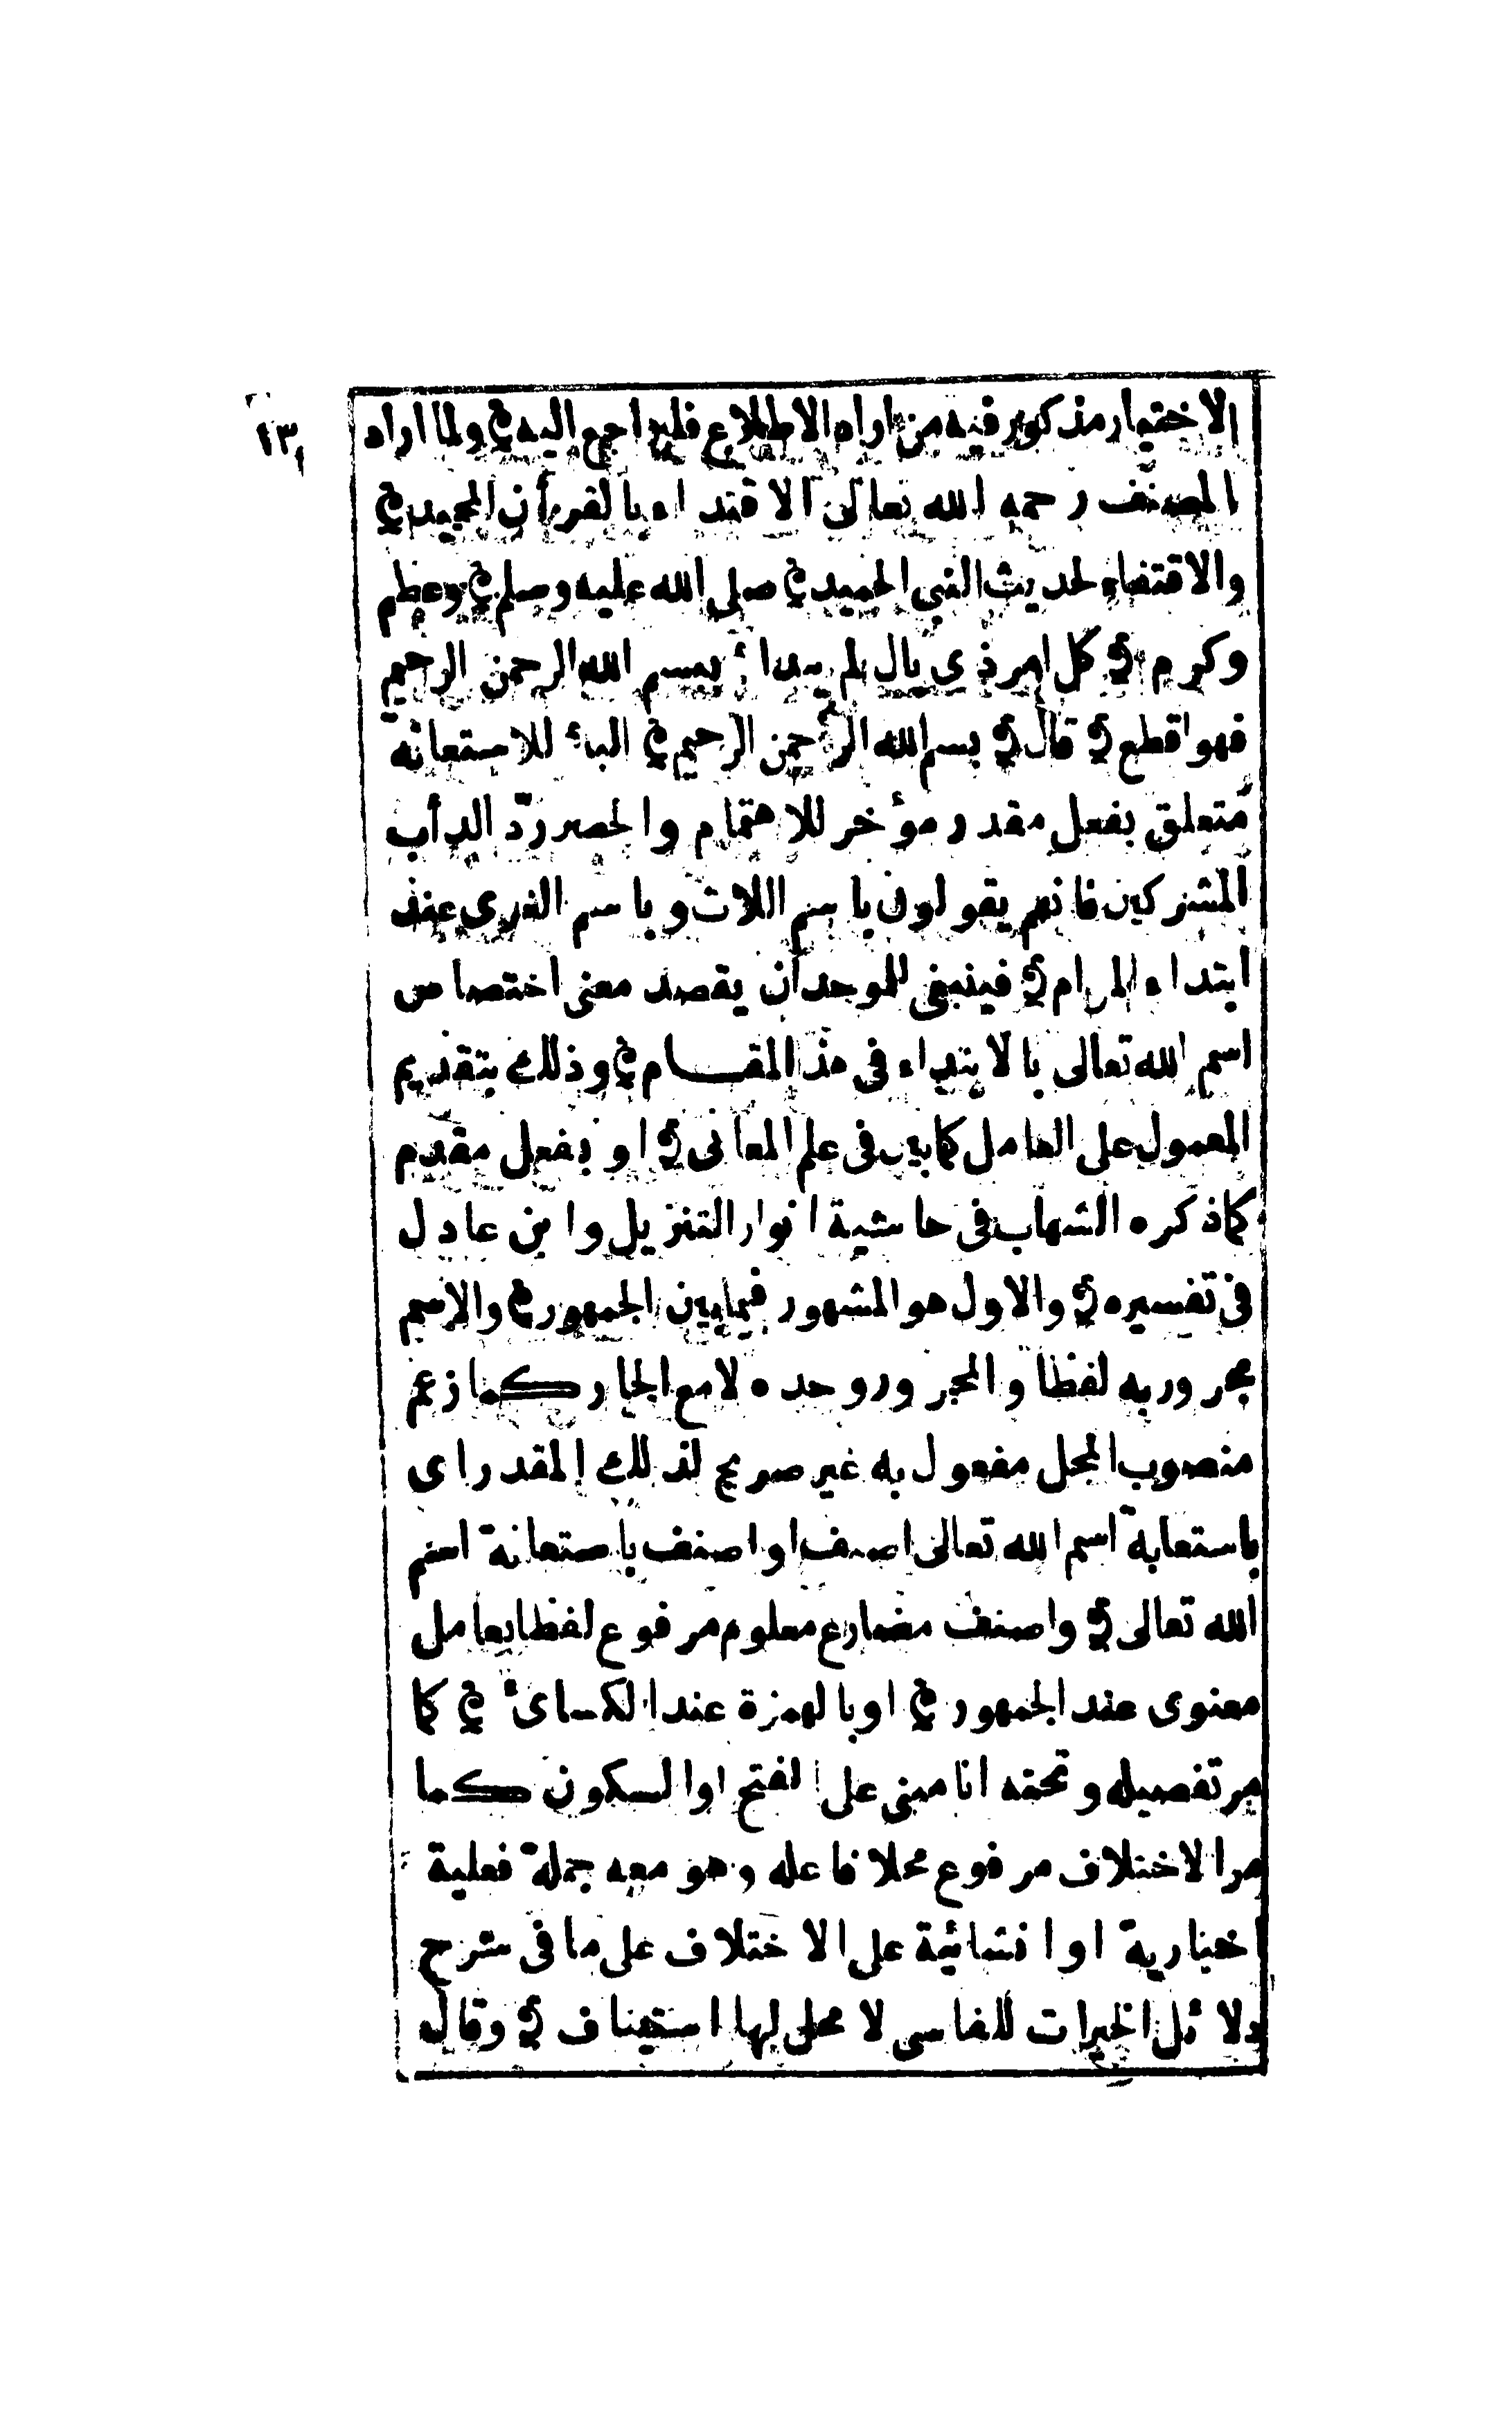 ١٣
الاختيار مذكور فيه من اراد الاطلاع فليراجع اليه ولما اراد
المصنف رحمه الله تعالى الاقتداء بالقرأن المجيد
والاقتفاء لحديث النبى الحميد صلى الله عليه وسلم وعظم
وكرم كل امر ذى بال لم يبدأ ببسم الله الرحمن الرحيم
فهو اقطع قال بسم الله الرحمن الرحيم الباء للاستعانة
متعلق بفعل مقدر مؤخر للاهتمام والحصر ردّ الدأب
المشركين فانهم يقولون باسم اللات وباسم العزى عند
ابتداء المرام فينبغى للموحد أن يقصد معنى اختصاص
اسم الله تعالى بالابتداء فى هذا المقام وذلك بتقديم
المعمول على العامل كما بين فى علم المعانى او بفعل مقدم
كما ذكره الشهاب فى حاشية انوار التنزيل وابن عادل
فى تفسيره والاول هو المشهور فيما بين الجمهور والاسم
مجرور به لفظا والمجرور وحده لا مع الجار كما زعم
منصوب المحل مفعول به غير صريح لذلك المقدر اى
باستعانة اسم الله تعالى اصنف او اصنف باستعانة اسم
الله تعالى واصنف مضارع معلوم مرفوع لفظا بعامل
معنوى عند الجمهور او بالهمزة عند الكسائى كما
مر تفصيله وتحته انا مبنى على الفتح او السكون كما
مر الاختلاف مرفوع محلا فاعله وهو معه جملة فعلية
اخبارية او انشائية على الاختلاف على ما فى شرح
دلائل الخيرات للفاسى لا محل لها استيناف وقال